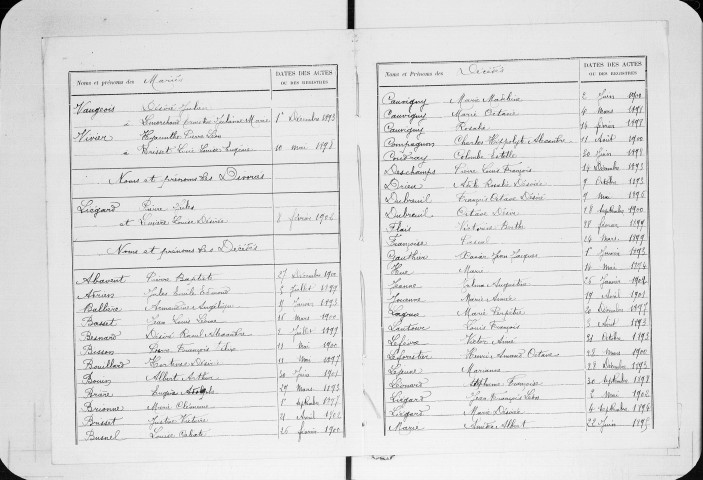 Noms et prénoms des Mariés
DATES DES ACTES
OU DES REGISTRES
Vaugeois Désiré Julien
à Marie 1er Décembre 1893
Vivier Hyacinthe Pierre Léon
à Louise Eugénie 10 mai 1898
Noms et prénoms des Divorcés
Liégard Pierre Jules
et Louise Désirée 8 février 1906
Noms et prénoms des Décédés
Abavent Pierre Baptiste 27 Décembre 1900
Jules Emile Edmond 2 Juillet 1899
Angélique 11 Janvier 1893
Basset Jean Louis 16 mars 1900
Besnard Désiré Raoul Alexandre 2 Juillet 1899
Bisson François 11 mai 1900
Bouillard Désiré 11 Mai 1897
Bouin Albert Arthur 30 Juin
29 Mars 1893
Brionne Marie Clémence Septembre 1898
Victoire 21 Avril 1902
Busnel Louise 26 février 1900
Noms et Prénoms des Décédés
DATES DES ACTES
OU DES REGISTRES
Cauvigny Marie Madeleine 2 Juin 1900
Cauvigny Marie Octave 4 mars 1898
Cauvigny Rosalie 14 février 1898
Compagnon Charles Hippolyte Alexandre 11 Août 1900
Coudray Colombe Estelle 30 Juin 1898
Deschamps Pierre Louis François 14 Décembre 1893
Drieu Rosalie Désirée 9 Octobre 1893
Dubreuil François Octave Désiré 9 Mai 1896
Dubreuil Octave Désiré 18 Septembre 1900
Flais Victorine Berthe 28 février 1899
Françoise 24 Mars 1899
Gauthier Jean Jacques 1er Février 1892
Hue Marie 14 Mai 1894
Jeanne Augustine 26 Janvier 1902
Jouenne Marie Aimée 19 Avril 1901
Marie Perpétue 20 Décembre 1897
Lautour Louis François 3 Août 1893
Lefèvre Victor Aimé 21 Octobre 1893
Leforestier Henri Amand Octave 28 Mars 1900
Marianne 28 Décembre 1893
Léonard Euphémie Françoise 30 Septembre 1898
Liégard Jean François Léon 2 Mai 1902
Liégard Marie Désirée 4 Septembre 1896
Marie Albert 22 Juin 1895